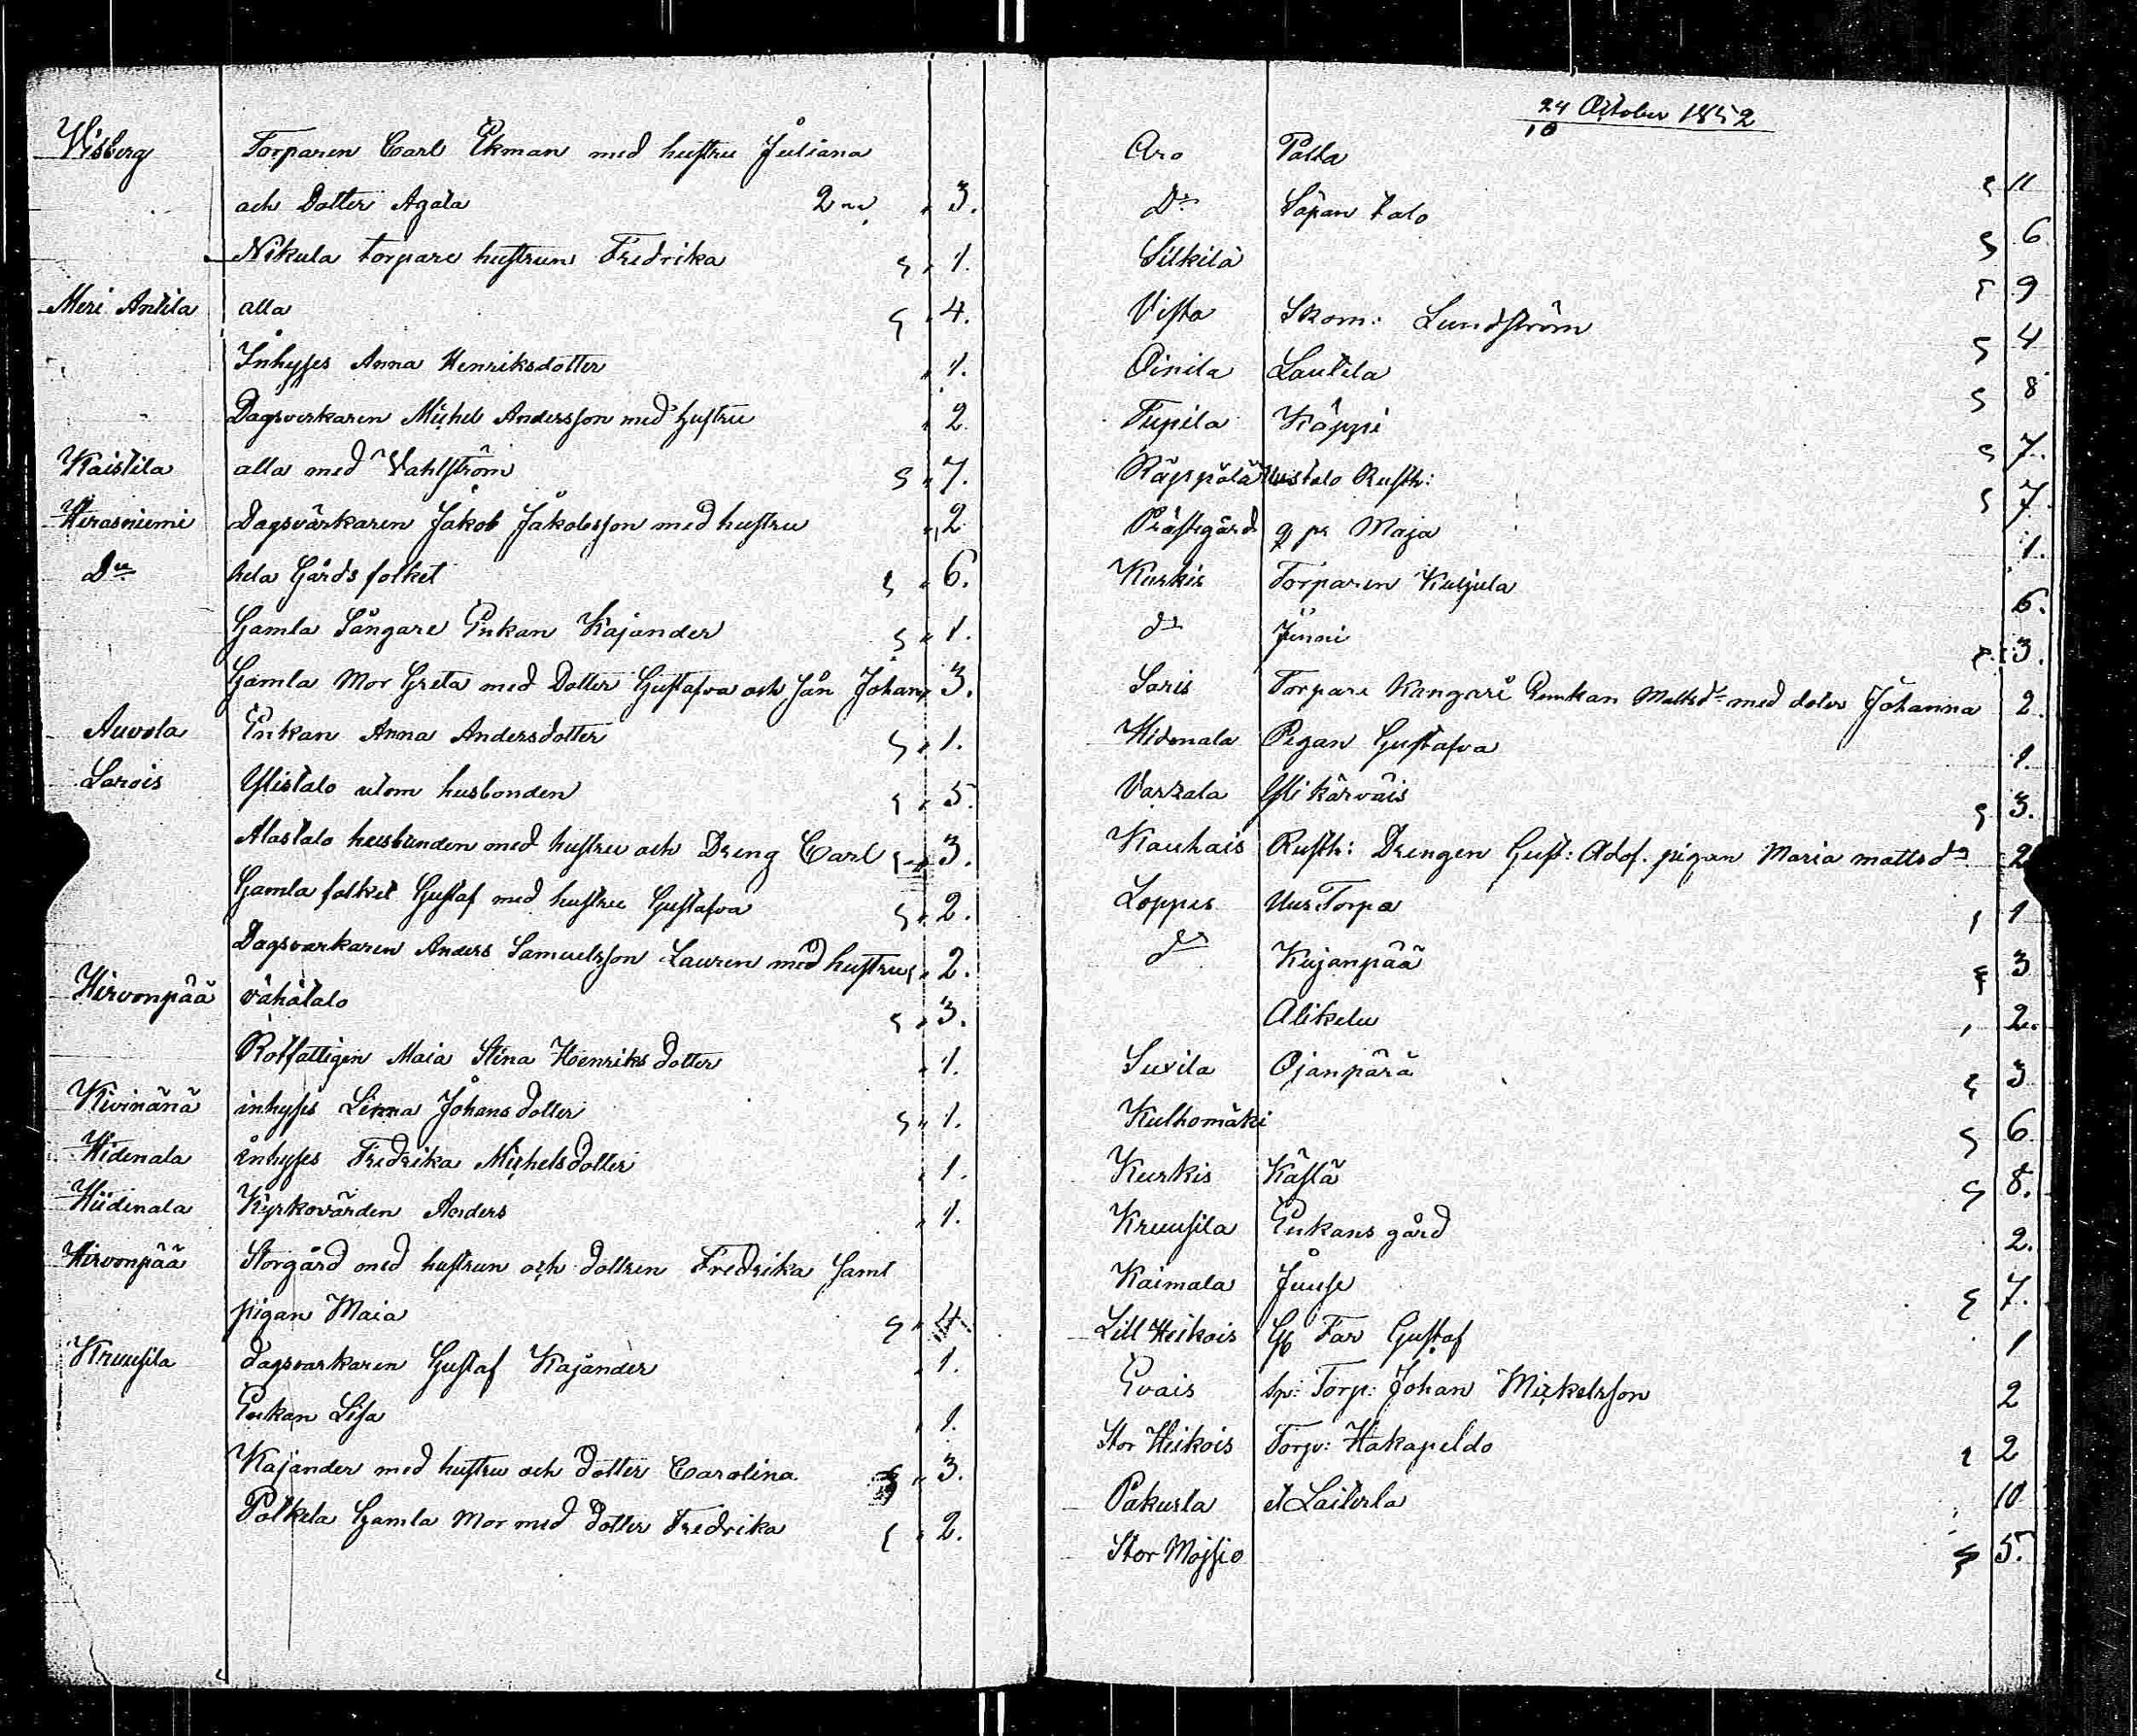 Visberg Torparen Carl Ekman med hustru Juliana
och Dotter Agata 3.
Nikula torpare hustrun Fredrika 1.
Meri Antila alla 4.
Inhyses Anna Henriksdotter 1.
Dagsverkaren Michel Andersson med hustru 2
Kaistila alla med Vahlström 7.
Herasniemi Dagsvärkaren Jakob Jakobsson med hustru 2
Do hela Gårds folket 6.
Gamla Sångare Enkan Kajander 1.
Gamla Mor Greta med Dotter Gustafva och Sån Johan 3.
Auvola Enkan Anna Andersdotter 1.
Larois Ylistalo utom husbonden 5.
Alastalo husbunden med hustru och Dreng Carl 3.
Gamla folket Gustaf med hustru Gustafva 2.
Dagsvarkaren Anders Samuelsson Lauren med hustru 2.
Hirvonpää vähätalo 3.
Rotfattigen Maia Stina Henriks dotter 1.
Kivinänä inhyses Linna Johans dotter 1.
Hidenala inhyses Fredrika Michelsdotter 1.
Hiidenala Kyrkovärden Anders 1.
Hirvonpää Storgård med hustrun och dottren Fredrika samt
pigan Maia 4.
Kruusila dagsvarkaren Gustaf Kajander 1.
Enkan Lisa 1.
Kajander med hustru och dotter Carolina 3.
Polkela Gamla Mor med dotter Fredrika 2.
24 October 1852
10
Aro Palla 11
Do Säpan talo 6
Silkilä 9
Vista Skom: Lundström 4
Oinila Lautela 8
Tupila Käppi 7.
Räppälä Uustalo Rusth: 7.
Prästegård Maja 1.
Kurkis Torparen Kutjula 6.
do Junni 3.
Saris Torpare Kangare Enkan Mattsdr med doter Johanna 2.
Hidenala Pigan Gustafva 1.
Varzala Yli kärväis 3.
Kauhais Rusth: Drengen Gust: Adof. pigan Maria mattsdr 2
Loppis Uus Torpa 1
do Kujanpää 3
Alikelu 2.
Suxila Ojanpärä 3
Kulhomäki 6
Kurkis Kästä 8.
Kruusila Enkans gård 2.
Kaimala Juuse 7.
Lill Heikois Far Gustaf 1
Evais Torp: Johan Mickelsson 2
Stor Heikois Torp: Hakapeldo 2
Pakurla et Laiterla 10
Stor Mojsio 5.